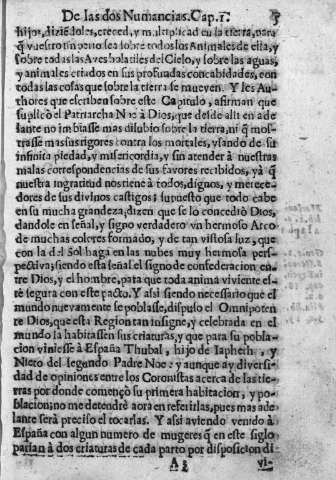 De las dos Numancias. Cap. 1. 3
hijos, dizié doles, creced, y multiplicad en la tierra, para
q̃ vuestro sea sobre todos los Animales de ella, y
sobre todas las Aves bolatiles del Cielo, y sobre las aguas,
y animales criados en sus profundas concabidades, con
todas las cosas que sobre la tierra se mueven. Y los Au-
thores que escriben sobre este Capitulo, afirman que
suplicò el Patriarcha Noè à Dios, que desde alli en ade
lante no imbiasse mas dilubio sobre la tierra, ni q̃ mos-
trasse mas sus rigores contra los mortales, vsando de su
infinita piedad, y misericordia, y sin atender à nuestras
malas correspondencias de sus favores recibidos, yà q̃
nuestra ingratitud nos tiene à todos, dignos, y merece-
dores de sus divinos castigos; supuesto que todo cabe
en su mucha grandeza, dizen que se lo concediò Dios,
dandole en señal, y signo verdadero vn hermoso Arco
de muchas colores formado, y de tan vistosa luz, que
con la del Sol haga en las nubes muy hermosa pers-
pectiva; siendo esta señal el signo de confederacion en-
tre Dios, y el hombre, para que toda anima viviente es-
tè segura con este pacto. Y assi siendo necesario que el
mundo nuevamente se poblasse, dispuso el Omnipoten
te Dios, que esta Region tan insigne, y celebrada en el
mundo la habitassen sus criaturas, y que para su pobla-
cion viniesse à España Thubal, hijo de Iapheth, y
Nieto del segundo Padre Noè: y aunque ay diversi-
dad de opiniones entre los Coronistas acerca de las tie-
rras por donde començò su primera habitacion, y po-
blacion; no me detendrè aora en referirlas, pues mas ade
lante serà preciso el tocarlas. Y assi aviendo venido à
España con algun numero de mugeres q̃ en este siglo
parian à dos criaturas de cada parto por disposicion di
A3 vi-